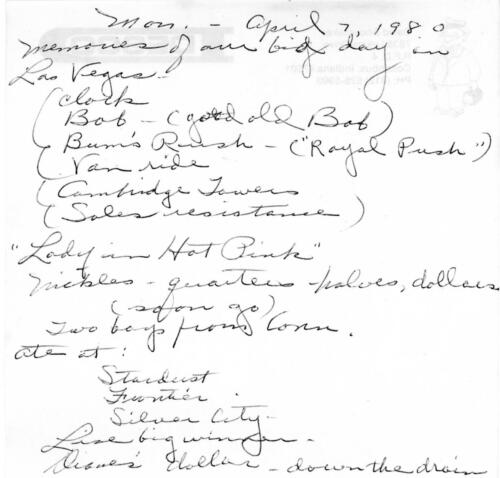 Mon. - April 7, 1980
Memories of our big day in
Las Vegas.
(Clock
(Bob - (good old Bob)
(Bum's Rush - ("Royal Push")
(Van ride
(Cambridge Towers
(Sales resistance)
"Lady in Hot Pink"
Nickles - quarters - halves, dollars
(soon go)
Two boys from Conn.
ate at:
Stardust
Frontier.
Silver City -
Lise big winner -
Diane's dollar - down the drain